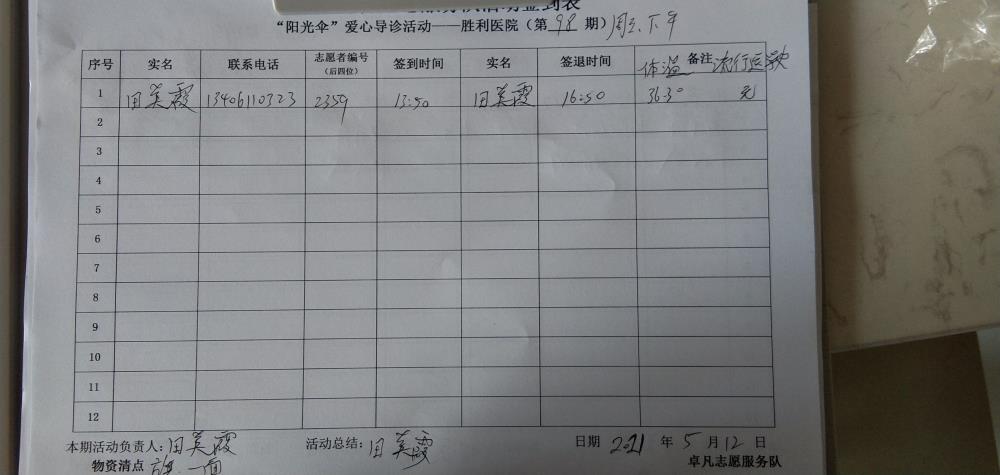 “阳光伞”爱心导诊活动——胜利医院（第 98 期）周三.下午
序号 实名 联系电话 志愿者编号（后四位） 签到时间 实名 签退时间 体温 备注 流行医学史
1 田美霞 13406110323 2359 13:50 田美霞 16:50 36.3° 无
2
3
4
5
6
7
8
9
10
11
12
本期活动负责人:田美霞 活动总结:田美霞 日期 2021 年 5 月 12 日
物资清点 旗一面 卓凡志愿服务队